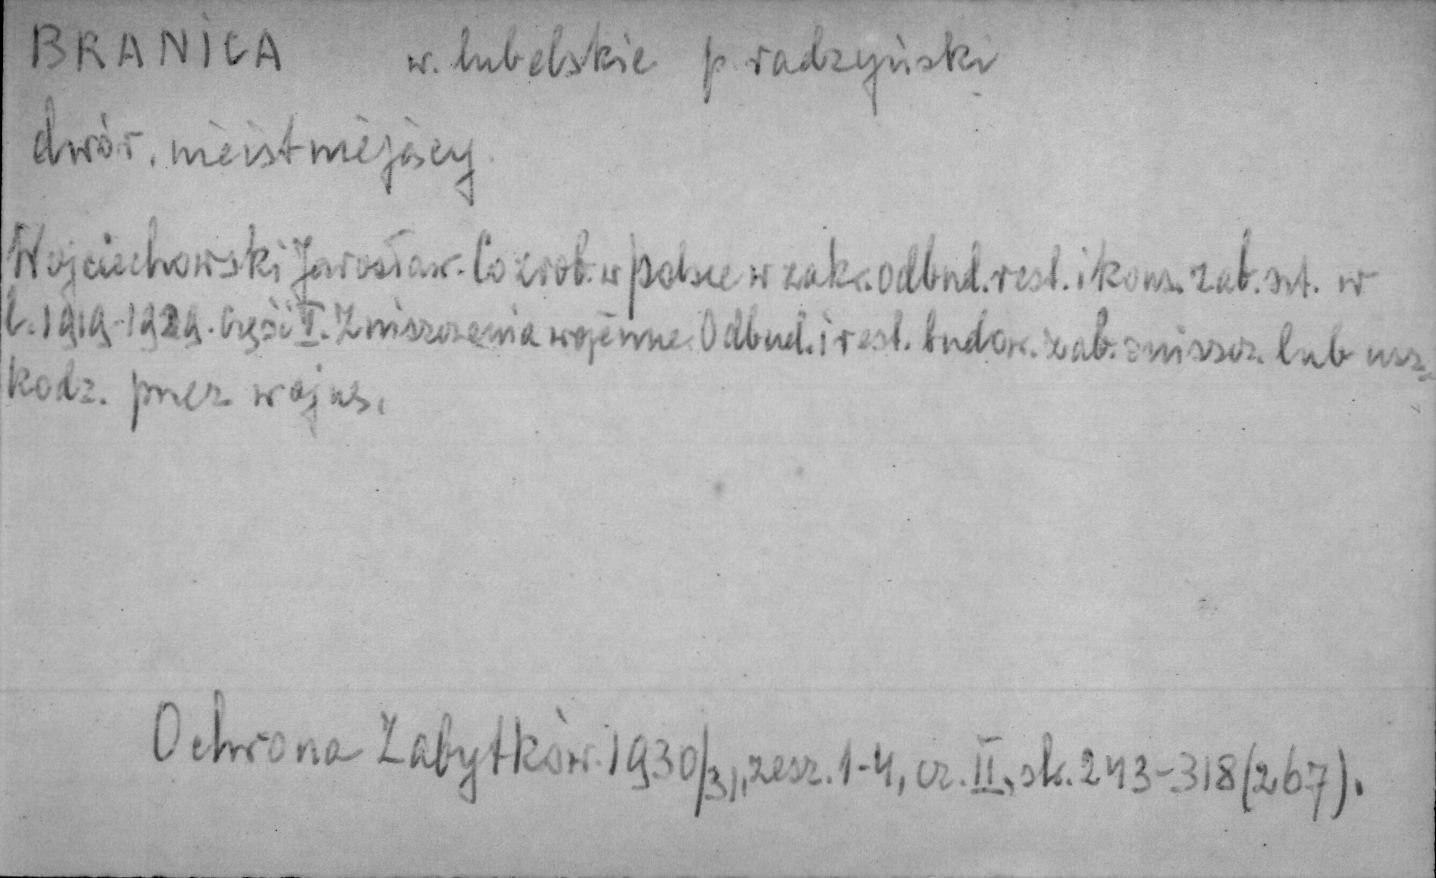 BRANICA w. lubelskie p radzyński
dwór. nieistniejący.
Wojciechowski Jarosław. Co zrob. w Polsce w zakr. odbud. rest. i kons. zab. szt. w
l. 1919-1929. Część I. Zniszczenia wojenne. Odbud. i rest. budow. zab. zniszcz. lub usz-
kodz. przez wojnę.
Ochrona Zabytków. 1930/31, zesz. 1-4, cz. II, sk. 243-318 (267).